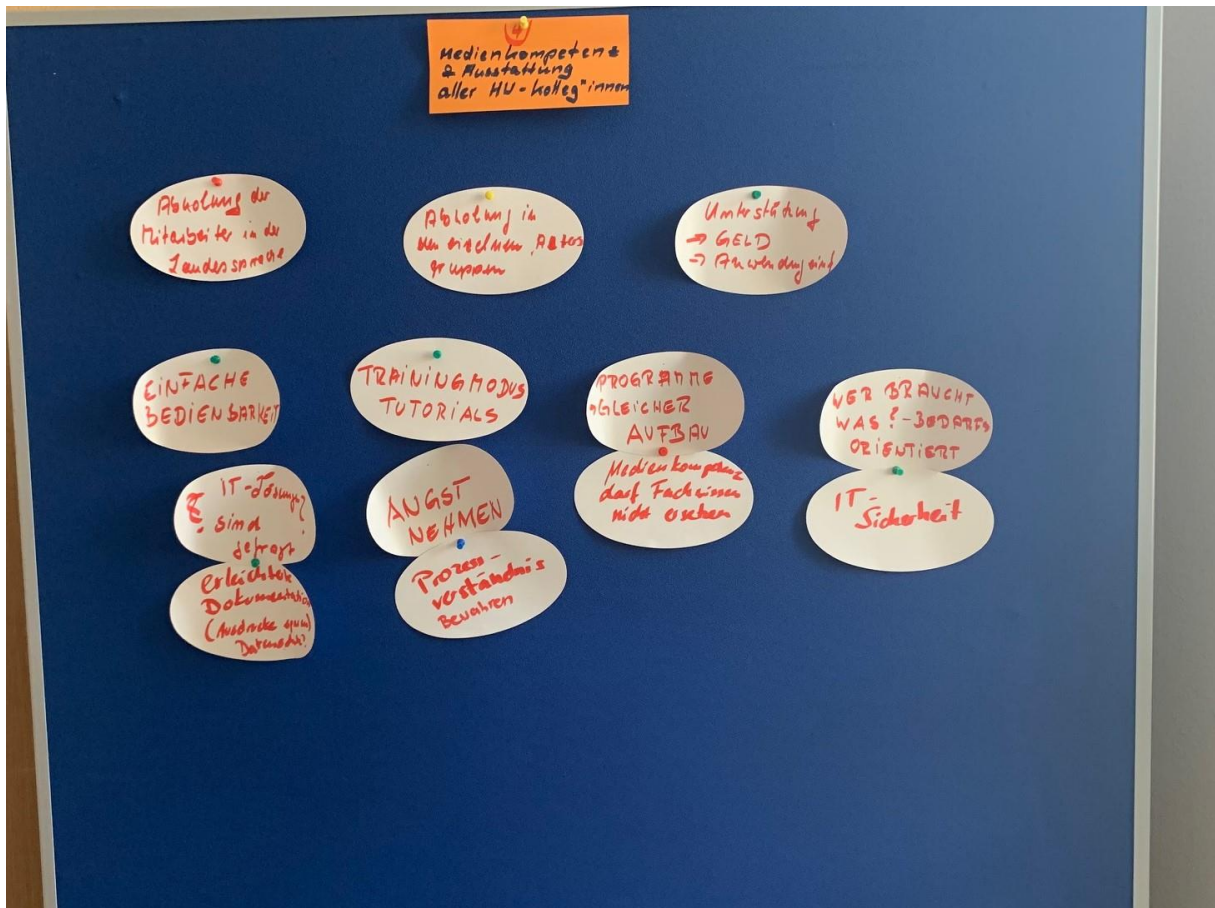 4
Medienkompetenz
& Ausstattung
aller HW-Kolleg*innen
Abholung der
Mitarbeiter in der
Landessprache
Abholung in
den einzelnen Alters
gruppen
Unterstützung
→ GELD
→ Anwendung
EINFACHE
BEDIENBARKEIT
TRAININGMODUS
TUTORIALS
PROGRAMME
→GLEICHER
AUFBAU
WER BRAUCHT
WAS?-BEDARFS
ORIENTIERT
IT-Lösungen
sind
gefragt
ANGST
NEHMEN
Medienkompetenz
darf Fachwissen
nicht ersetzen
IT-
Sicherheit
erleichterte
Dokumentation
(Ausdrucke
Datenschutz?
Prozess-
verständnis
Bewahren